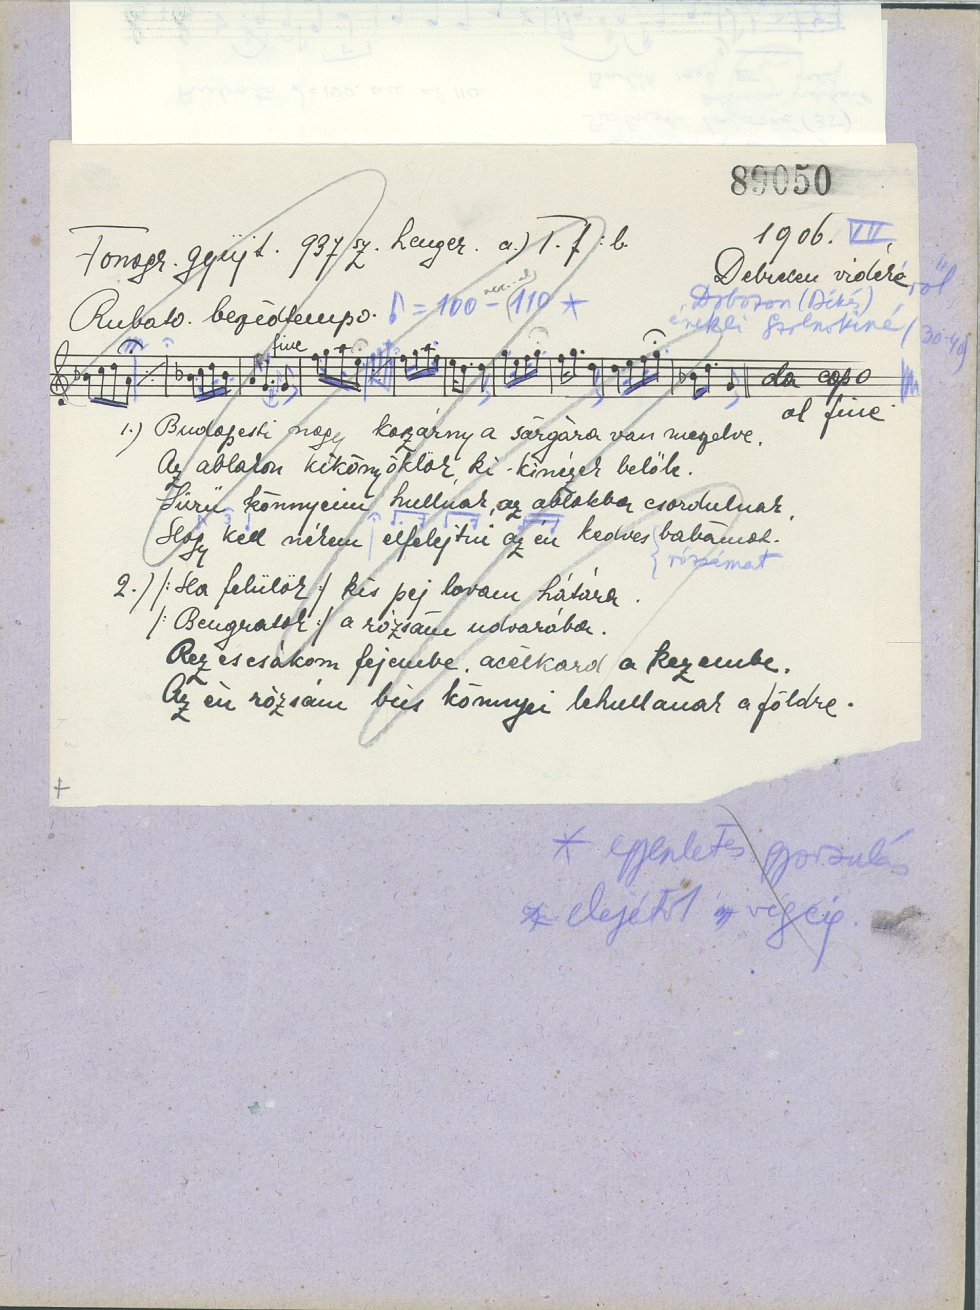 89050
Fonogr. gyüjt. 937 sz. henger. a.) T. f. b.
1906. VII.
Debrecen vidéké ről
Rubato. beszédtempo. ♪ = 100 - (110 *
Dobozon (Békés)
énekli Szolnokiné (30-40)
fine
da capo
al fine
1.) Budapesti nagy kaszárnya sárgára van meszelve,
Az ablakon kikönyöklök, ki-kinézek belőle.
Sürü könnyeim hullnak, az ablakba csordulnak,
Hogy kell nékem elfelejtni az én kedves babámat.
rózsámat
2.) /: Ha felülök :/ kis pej lovam hátára.
/: Beugratok :/ a rózsám udvarába.
Rezes csákóm fejembe, acélkard a kezembe,
Az én rózsám bús könnyei lehullanak a földre.
* egyenletes gyorsulás
elejétől végéig.